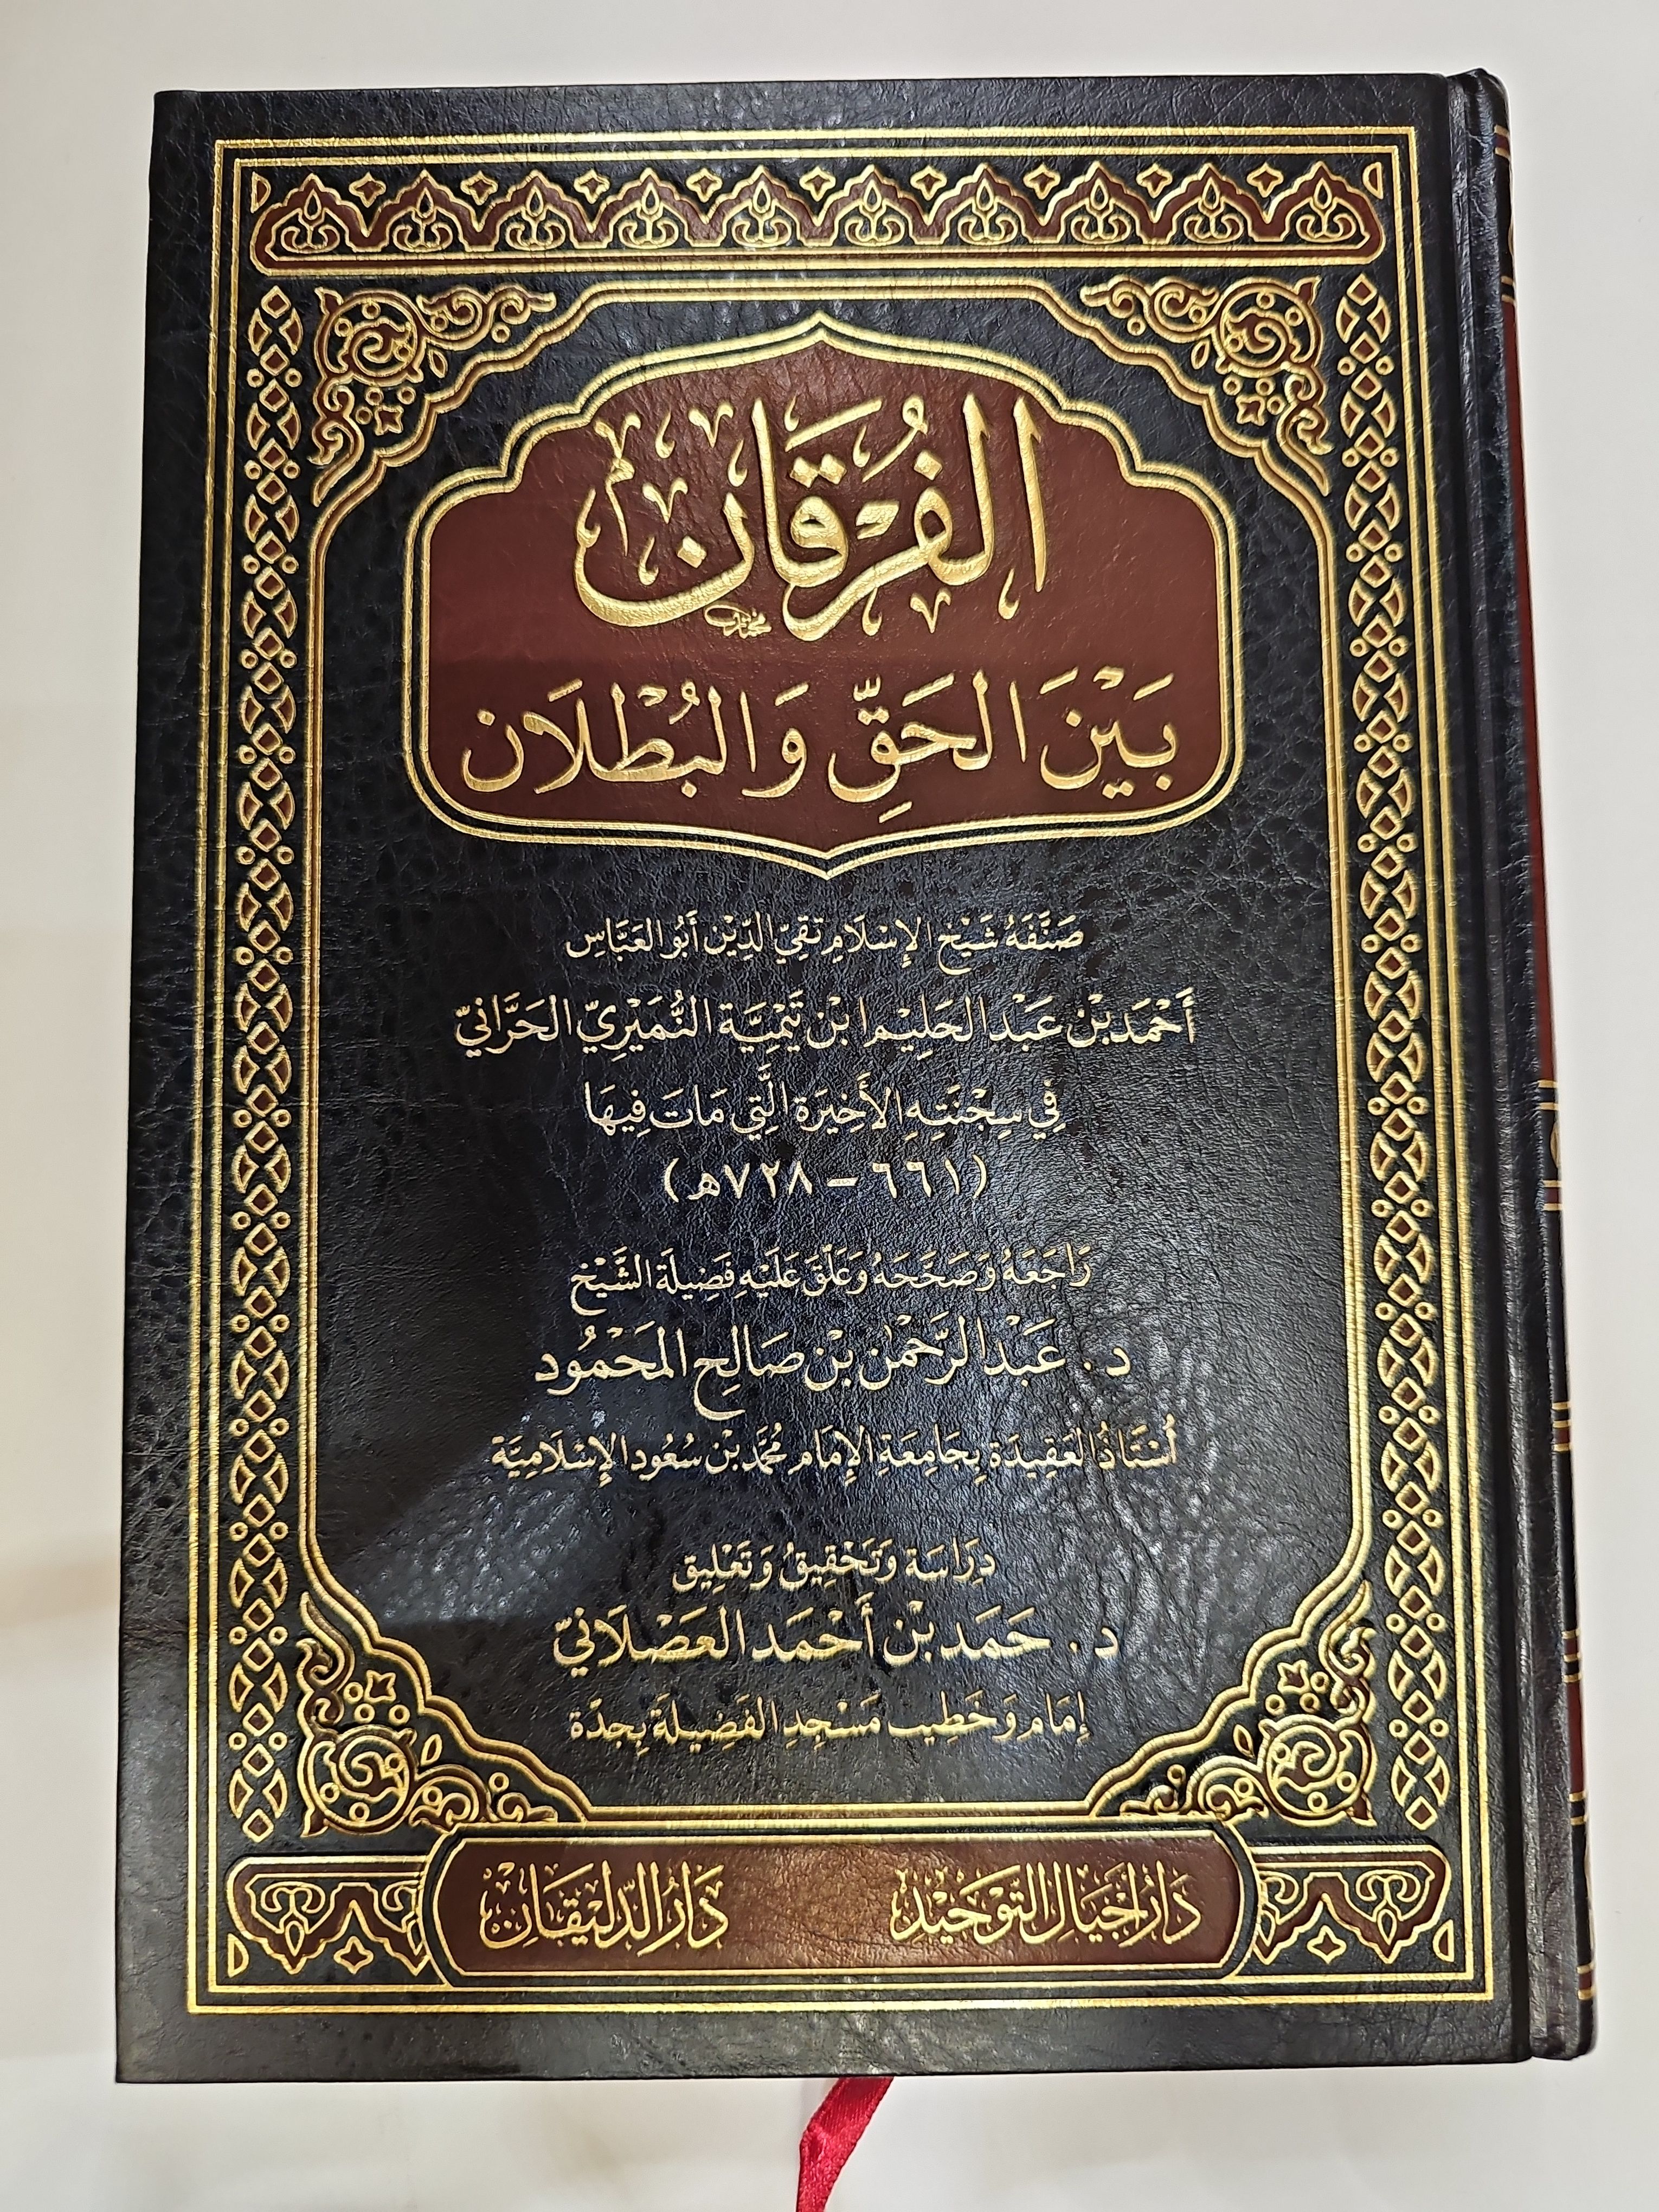 الفُرقَان
بَيْنَ الحَقِّ وَالبُطْلَان
صَنَّفَهُ شَيْخ الإِسْلَام تَقِيّ الدِّيْن أَبُو العَبَّاسِ
أَحْمَد بْن عَبْد الحَلِيْم ابْن تَيْمِيَّة النُّمَيْرِيّ الحَرَّانِيّ
فِي سِجْنَتِهِ الأَخِيرَة الَّتِي مَاتَ فِيهَا
(٦٦١ - ٧٢٨هـ)
رَاجَعَهُ وَصَحَّحَهُ وَعَلَّقَ عَلَيْهِ فَضِيلَة الشَّيْخ
د. عَبْد الرَّحْمٰن بْن صَالِح المَحْمُود
أُسْتَاذُ العَقِيدَة بِجَامِعَة الإِمَام مُحَمَّد بْن سُعُود الإِسْلَامِيَّة
دِرَاسَة وَتَحْقِيقُ وَتَعْلِيق
د. حَمَد بْن أَحْمَد العَصْلَانِيّ
إِمَام وَخَطِيب مَسْجِدِ الفَضِيلَة بِجِدَّة
دَار أَجْيَال التَّوْحِيْد
دَار الدِّلِيْقَان